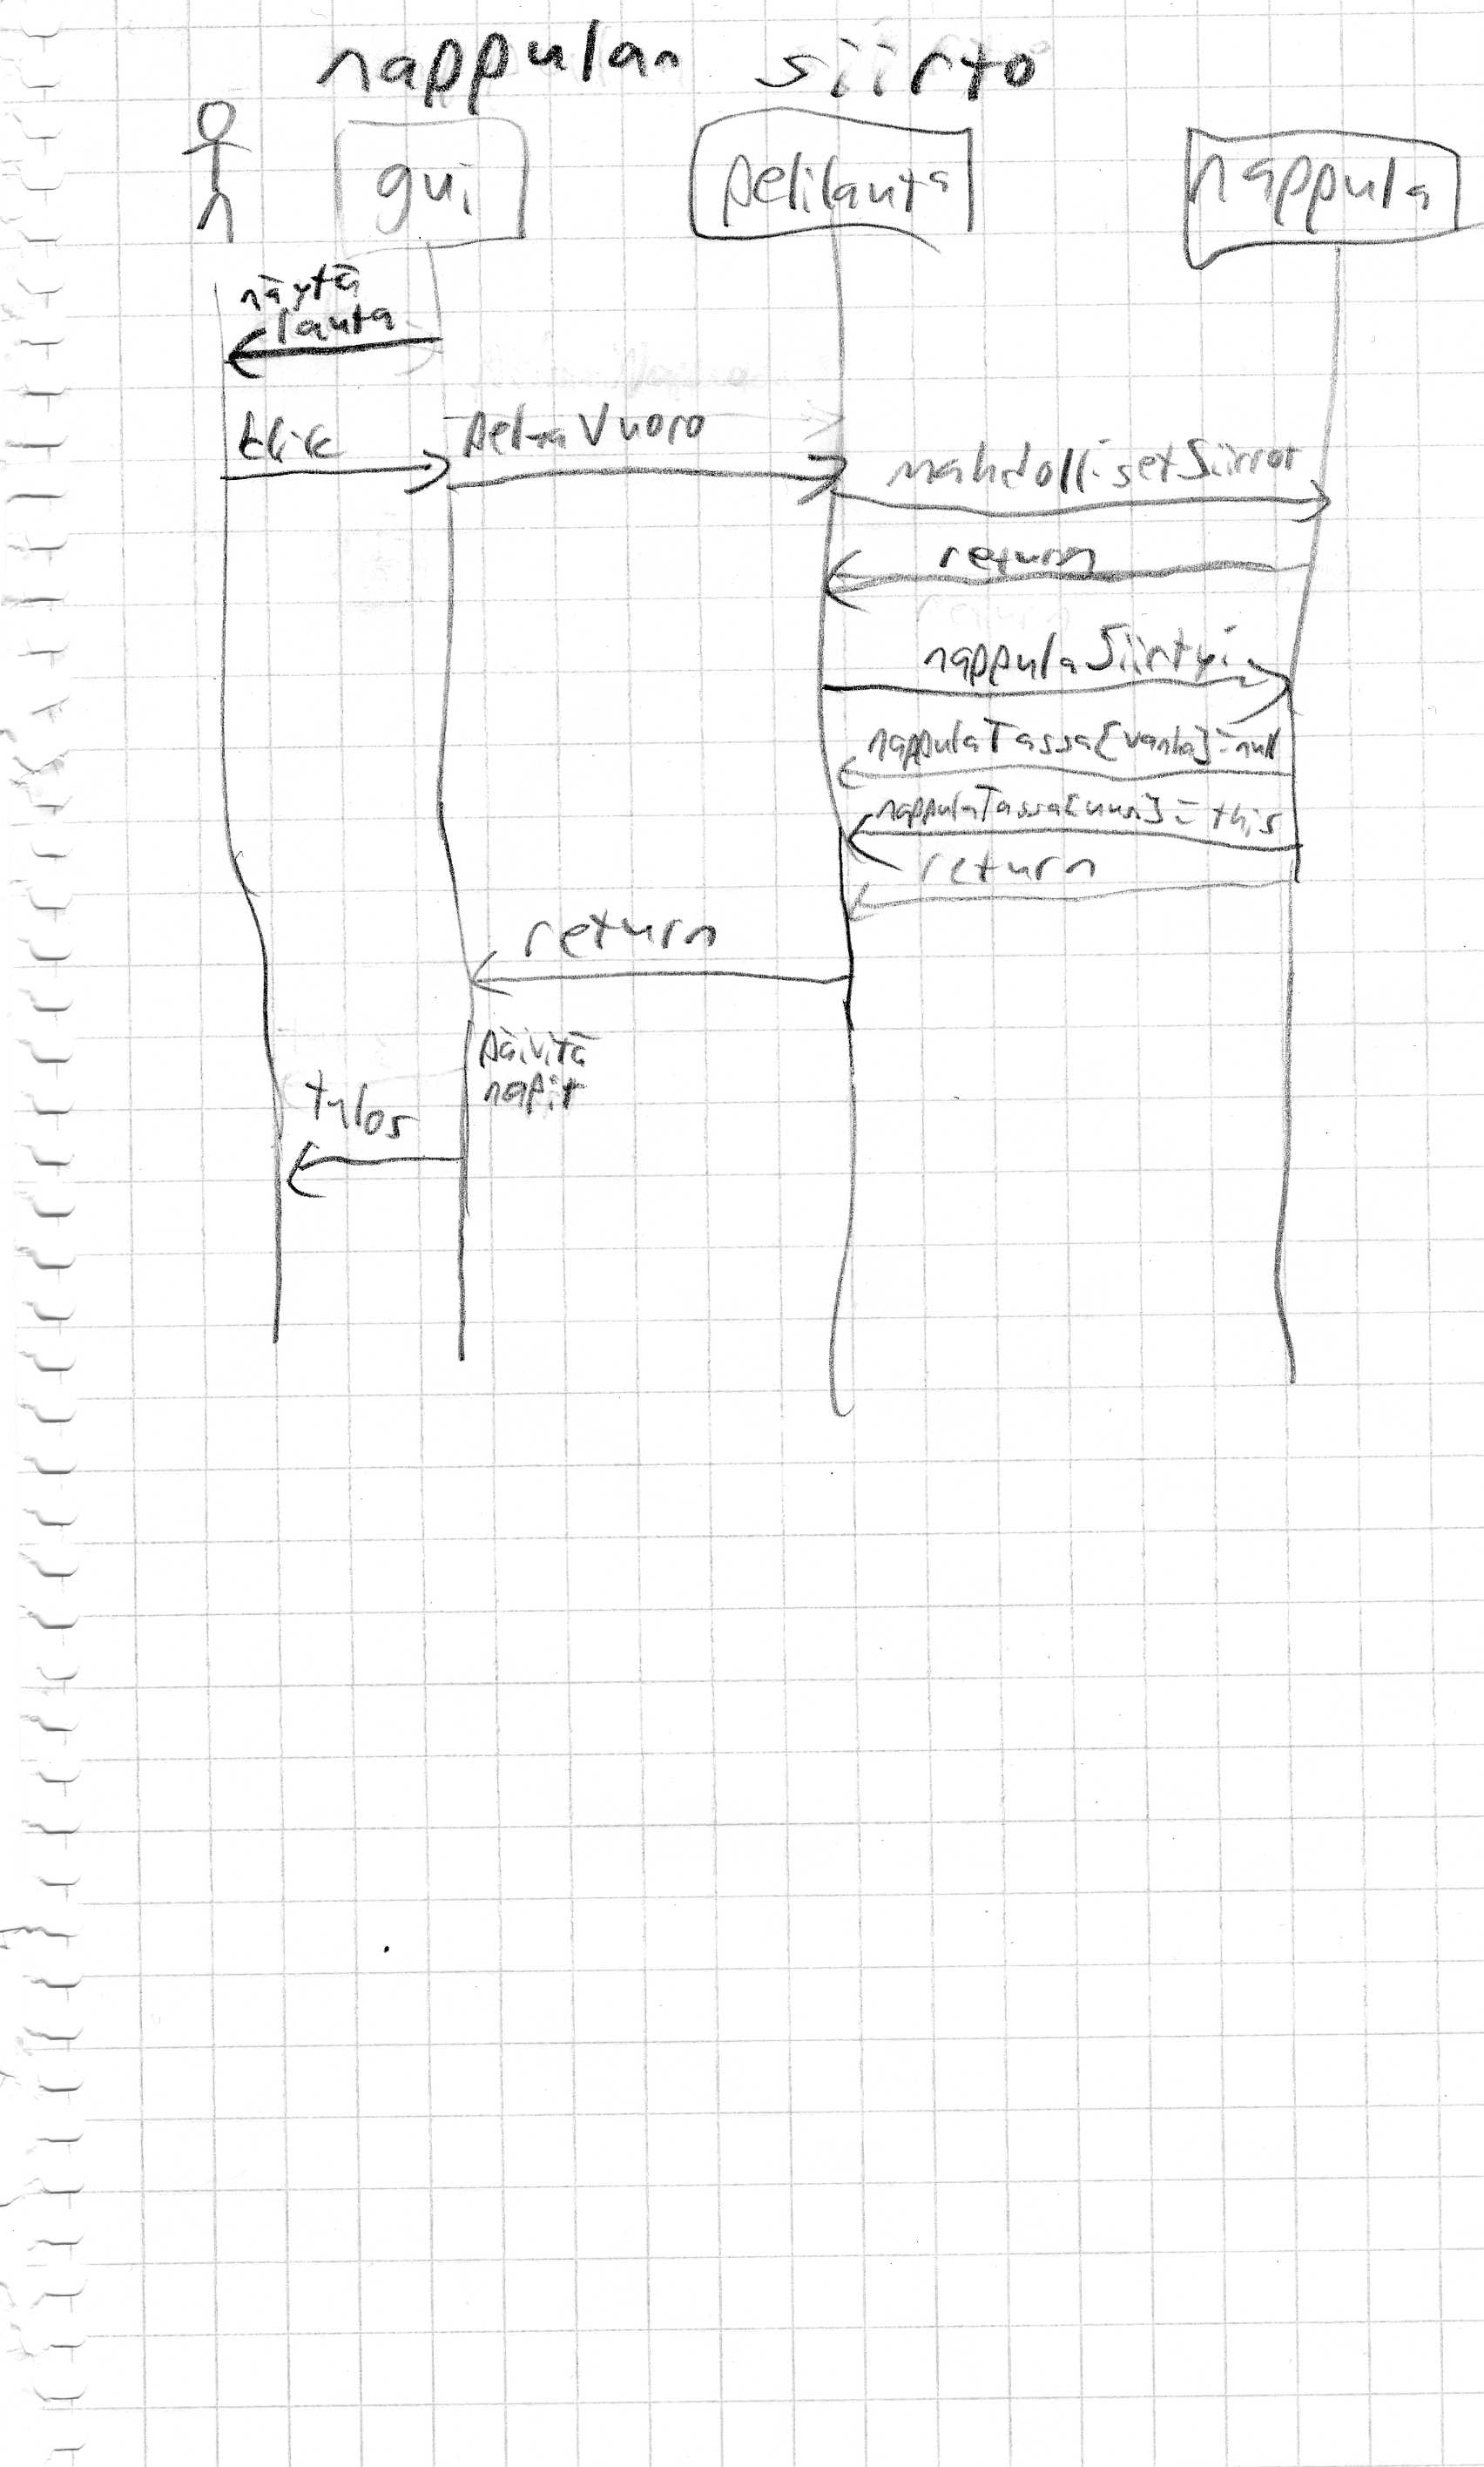 nappulan siirto
gui
pelilauta
nappula
näytä
lauta
klik
pelaaVuoro
mahdollisetSiirrot
return
nappulaSiirtyi
nappulaTassa[vanha]=null
nappulaTassa[uusi]=this
return
return
päivitä
napit
tulos